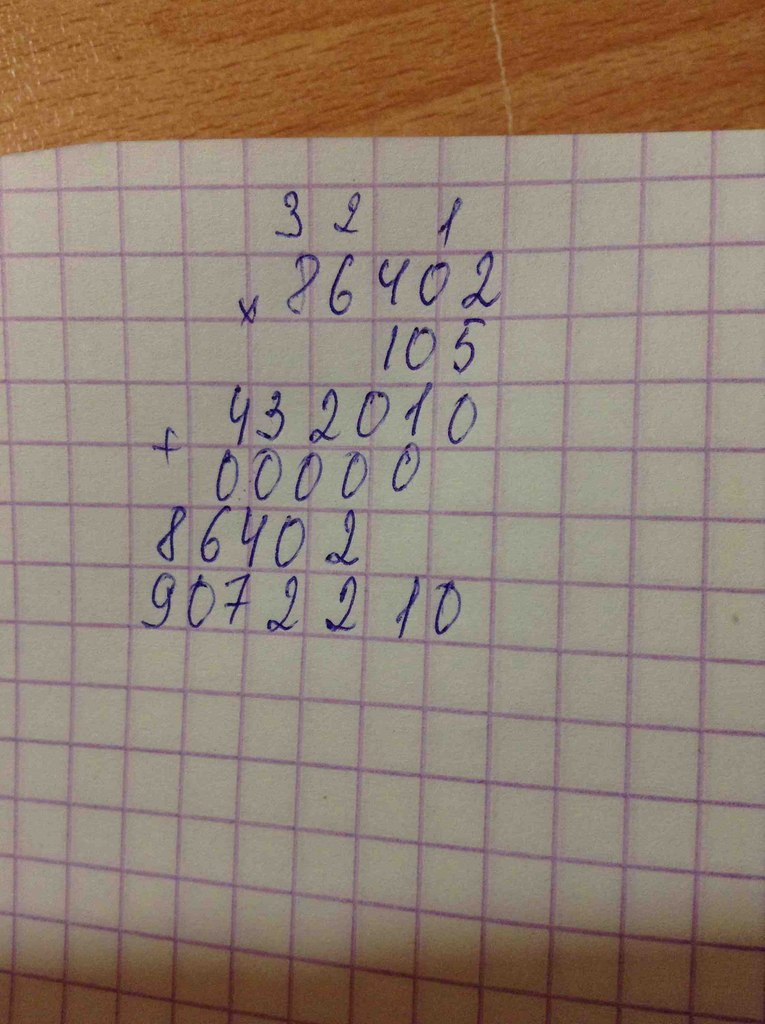 3 2 1
× 86402
105
432010
+
00000
86402
9072210